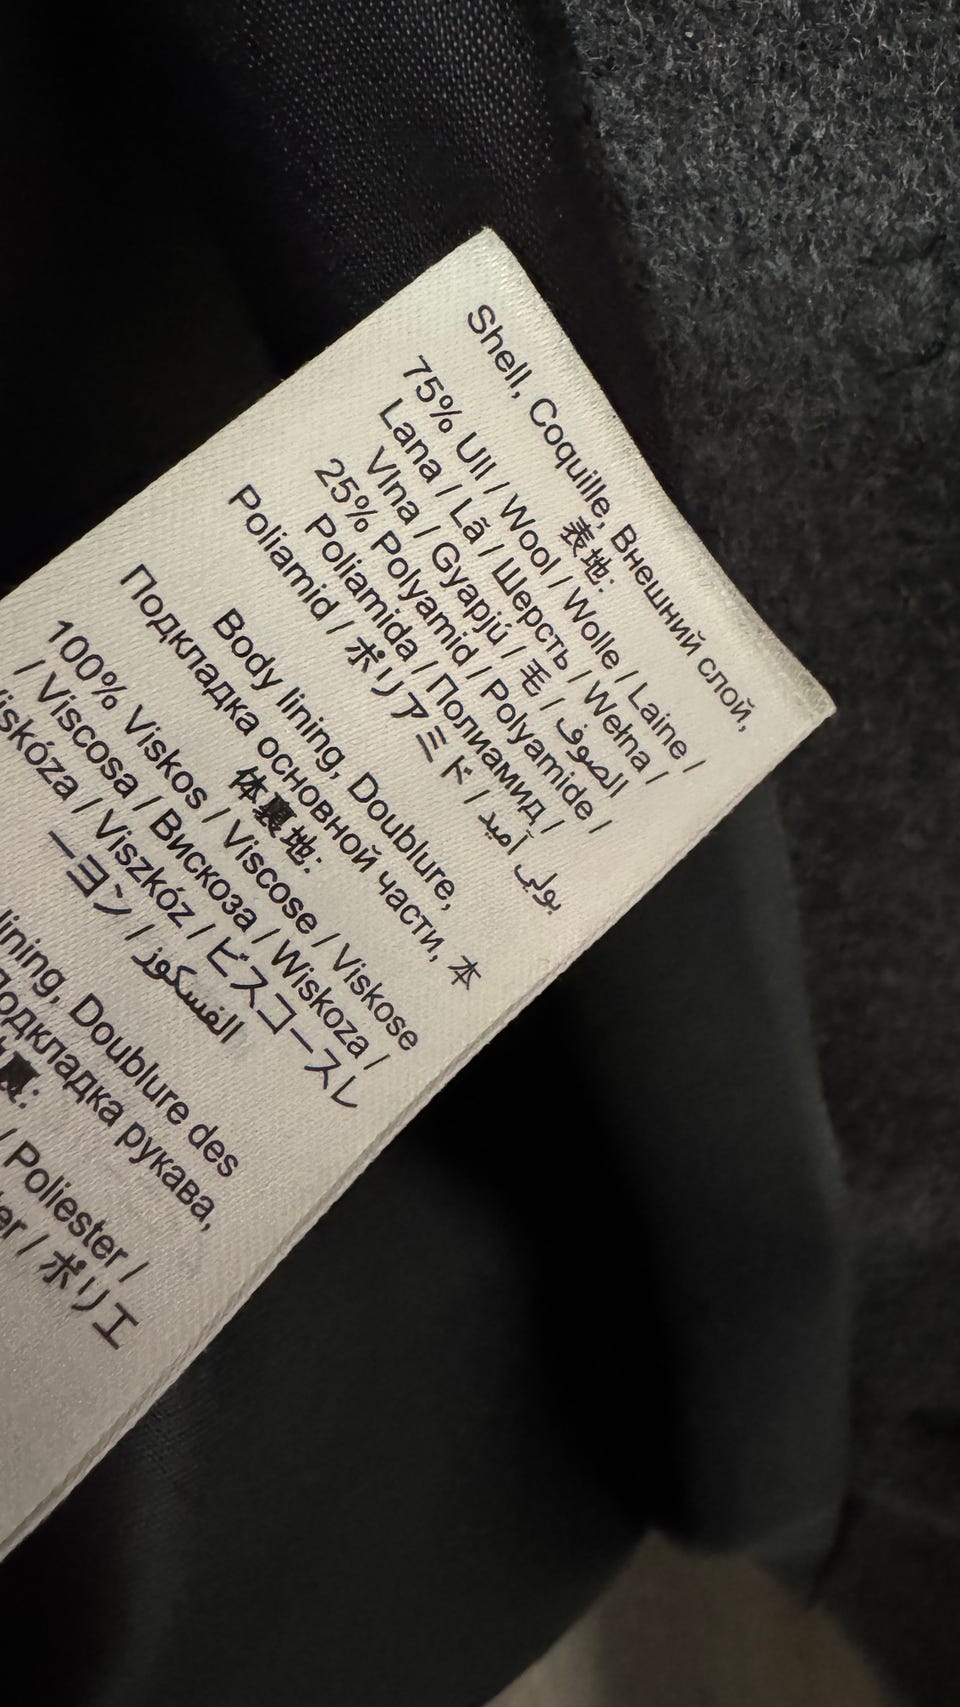 Shell, Coquille, Внешний слой,
表地:
75% Ull / Wool / Wolle / Laine /
Lana / Lã / Шерсть / Wełna /
Vlna / Gyapjú / 毛 / الصوف
25% Polyamid / Polyamide /
Poliamida / Полиамид /
Poliamid / ポリアミド / بولي آميد
Body lining, Doublure,
Подкладка основной части, 本
体裏地:
100% Viskos / Viscose / Viskose
/ Viscosa / Вискоза / Wiskoza /
Viskóza / Viszkóz / ビスコースレ
ーヨン / الفسكوز
lining, Doublure des
подкладка рукава,
裏:
/ Poliester /
/ ポリエ